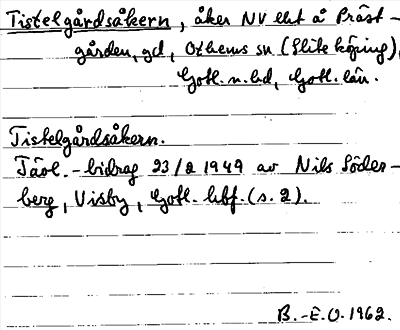 Tistelgårdsåkern, åker NV ekt å Präst-
gården, gd, Othems sn (Slite köping),
Gotl. n. hd, Gotl. län.
Tistelgårdsåkern.
Tävl.-bidrag 23/2 1949 av Nils Söder-
berg, Visby, Gotl. hbf. (s. 2).
B.-E.O. 1962.